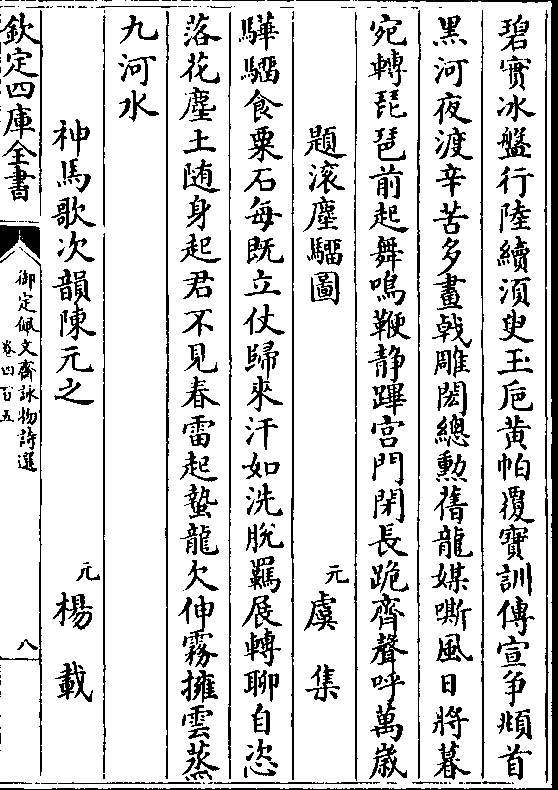 碧實冰盤行陸續須臾玉巵黄帕覆寶訓傳宣爭頫首
黑河夜渡辛苦多畫戟雕閎總勲舊龍媒嘶風日將暮
宛轉琵琶前起舞鳴鞭静蹕宮門閉長跪齊聲呼萬歳
題滚塵騮圖
元虞集
驊騮食粟石每既立仗歸來汗如洗脫羈展轉聊自恣
落花塵土随身起君不見春雷起蟄龍欠伸霧擁雲蒸
九河水
神馬歌次韻陳元之
元楊載
欽定四庫全書
御定佩文齋詠物詩選
卷四百五
八